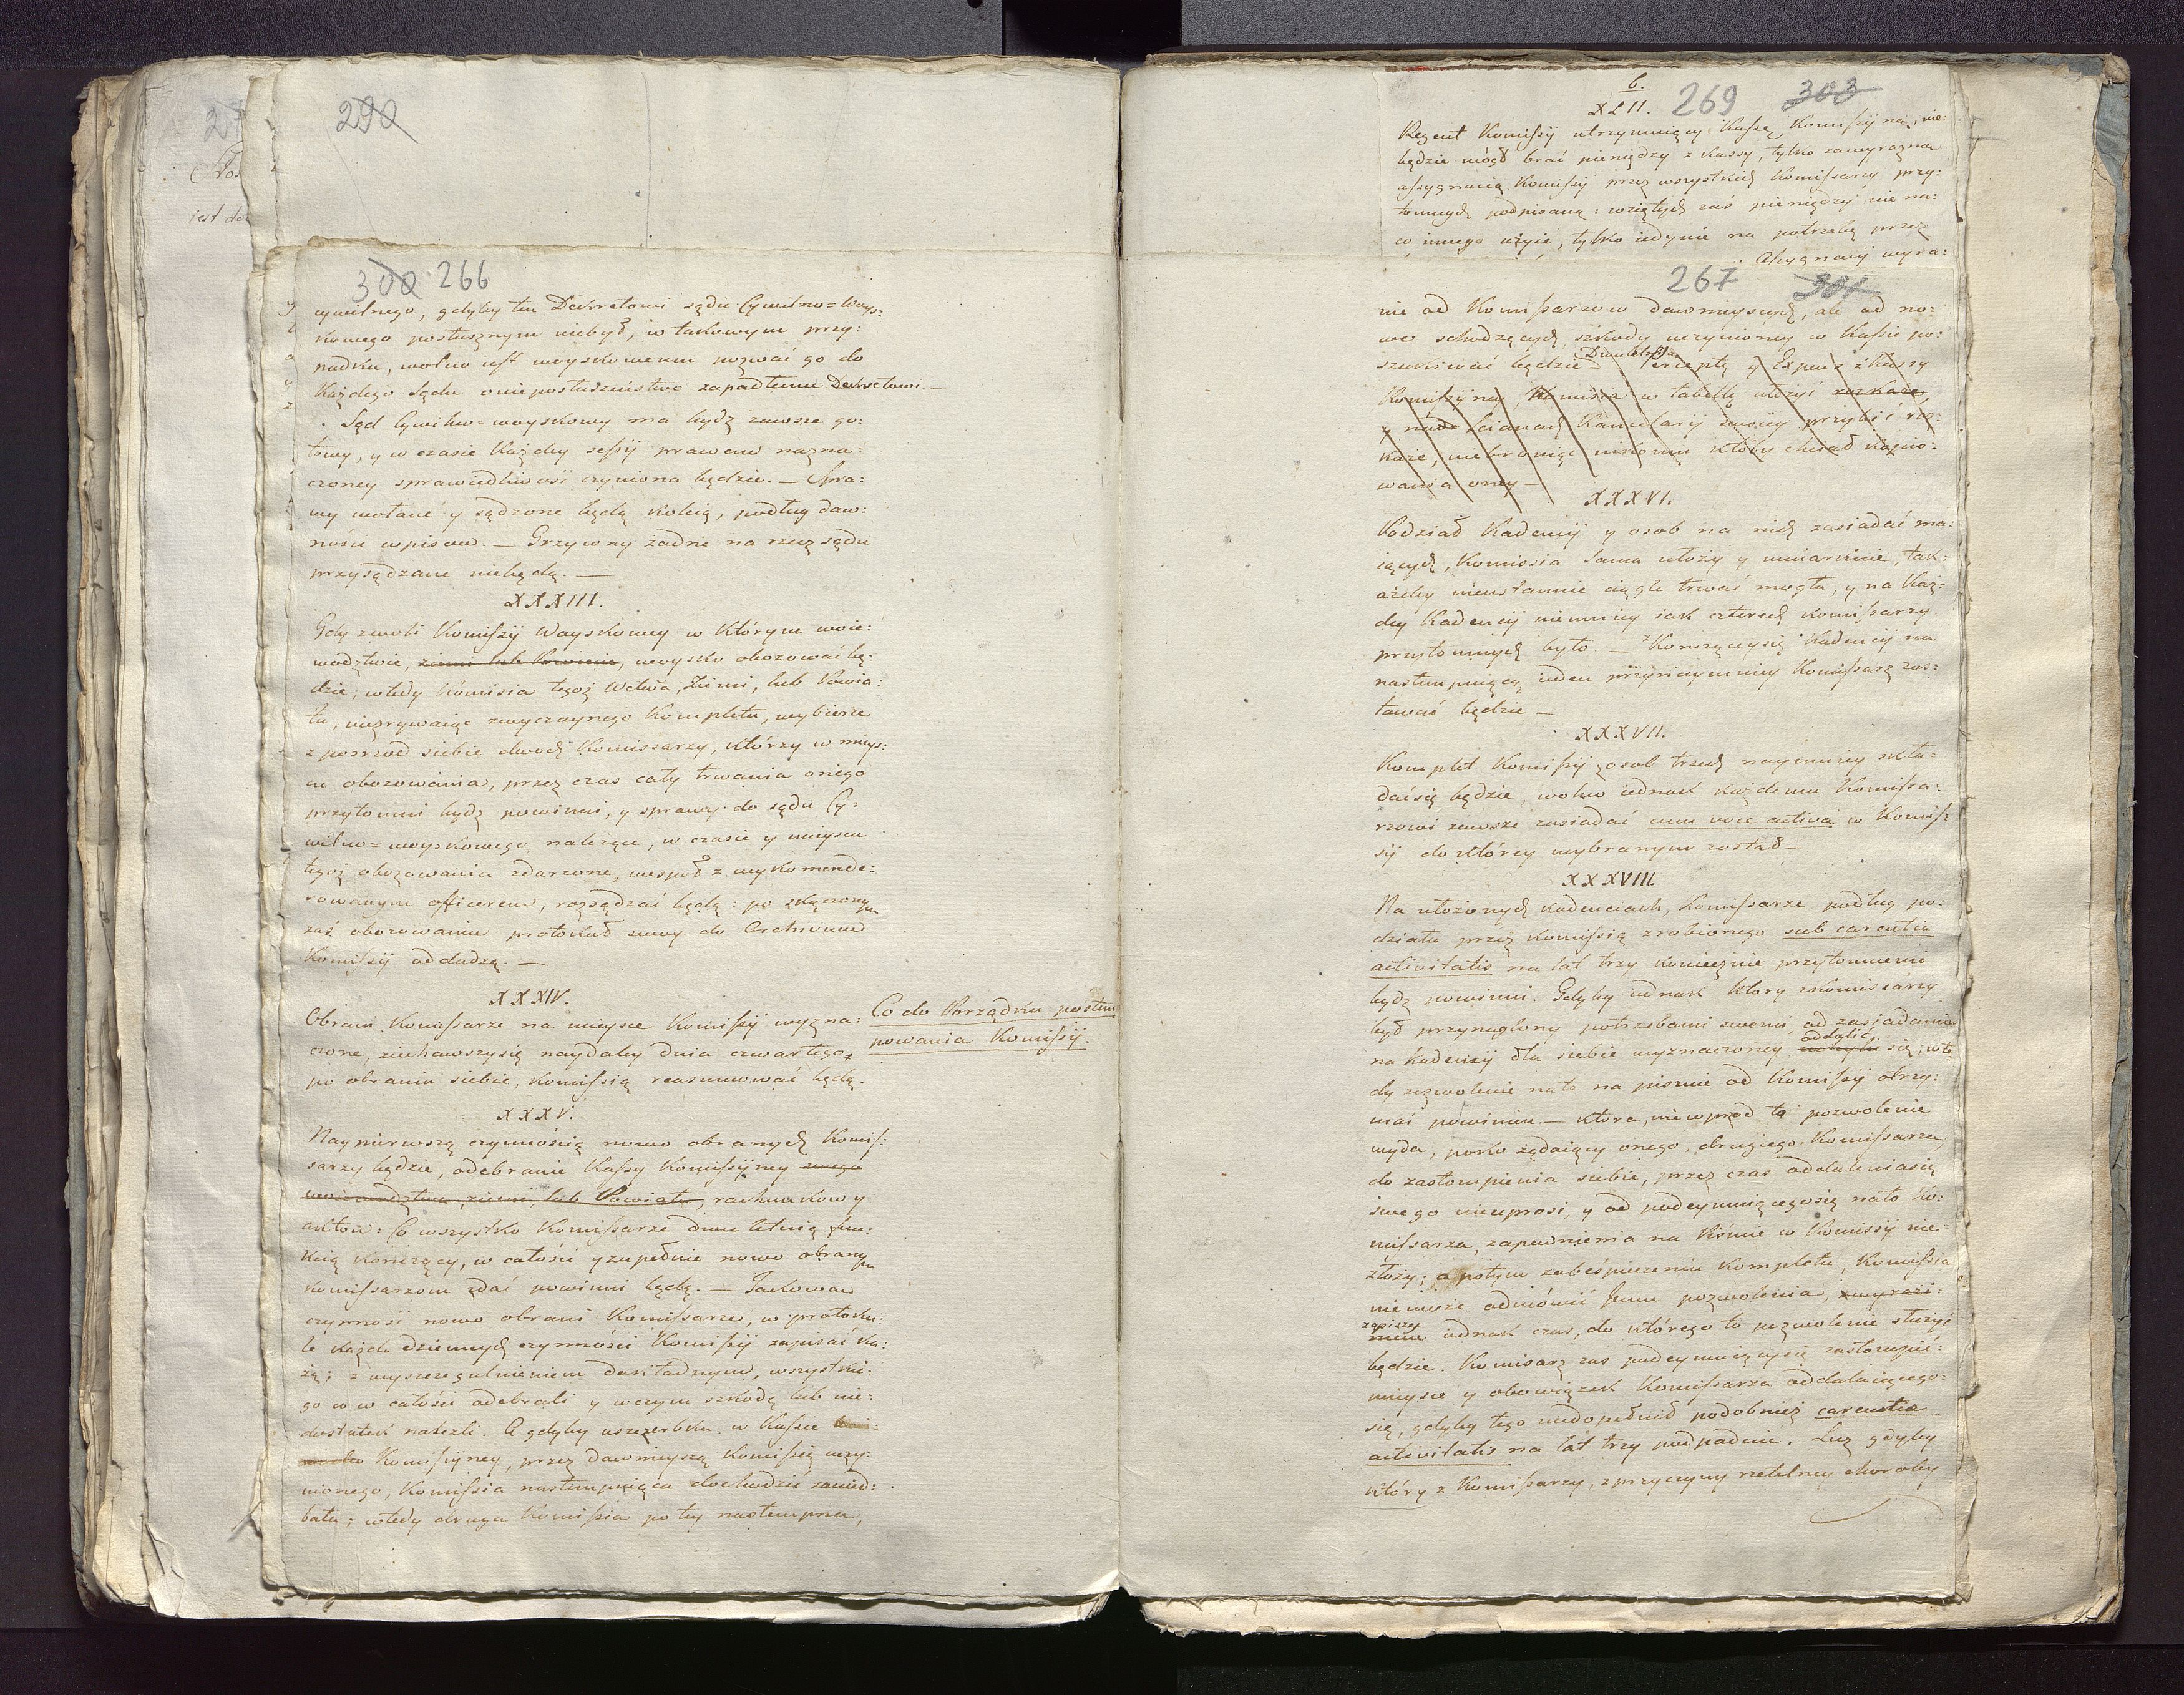 290
300 266
cywilnego, gdyby tu Dekretowi sądu Cywilno=Woys=
kowego posłusznym niebył, w takowym przy:
padku, wolno iest woyskowemu pozwać go do
Każdego Sądu o nieposłuszeństwo zapadłemu Dekretowi.—
Sąd Cywilno=woyskowy ma bydź zawsze go:
towy, y w czasie Każdey sessyi prawem nazna:
czoney sprawiedliwość czyniona będzie. — Spra:
wy wołane y sądzone będą koleią, podług daw:
ności wpisów. — Grzywny żadne na rzecz sądu
przysądzane niebędą. —
XXXIII.
Gdy z woli Komissyi Woyskowey w którym woie:
wodztwie, ziemi lub Powiecie, woysko obozować bę:
dzie; wtedy Komissia tegoż Wdztwa, Ziemi, lub Powia:
tu, niezrywaiąc zwyczaynego Kompletu, wybierze
z posrzod siebie dwoch Komissarzy, którzy w mieys:
cu obozowania, przez czas cały trwania onego
przytomni bydź powinni, y sprawy do sądu Cy:
wilno=woyskowego należące, w czasie y mieyscu
tegoż obozowania zdarzone, wespoł z wykomende:
rowanym officerem, rozsądzać będą: po skączonym
zaś obozowaniu protokuł swoy do Archivum
Komissyi oddadzą. —
XXXIV.
Obrani Komissarze na mieysce Komissyi wyzna:
czone, ziechawszysię naydaley dnia czwartego,
po obraniu siebie, komissią reassumować będą.
Co do Porządku postem
powania Komissyi.
XXXV.
Naypierwszą czynnością nowo obranych Komis:
sarzy będzie, odebranie Kassy Komissyiney swego
woiewodztwa, ziemi, lub Powiatu, rachunkow y
aktow: Co wszystko Komissarze dwuletnią fun:
kcią kończący, w całości y zupełnie nowo obranym
komissarzom zdać powinni będą. — Takowe
czynności nowo obrani Komissarze, w protoku:
le każdo dziennych czynności Komissyi zapisać ka:
żą; z wyszczegulnieniem dokładnym, wszystkie:
go co w całości odebrali y w czym szkodę lub nie:
dostatek naleźli. A gdyby uszczerbku w Kassie
Komissyiney, przez dawnieyszą Komissię uczy:
nionego, Komissia nastempuiąca dochodzić zanied:
bała; wtedy druga Komissia po tey nastempna,
6.
XLII. 269 303
Regent Komissyi utrzymuiący Kassę Komissyiną, nie:
będzie mógł brać pieniędzy z kassy, tylko za wyrazną
assygnacią Komissyi przez wszystkich Komissarzy przy:
tomnych podpisaną: wziętych zaś pieniędzy nie na:
co innego użyie, tylko iedynie na potrzebę przez
Assygnacyi wyra:
267 301
nie od Komissarzow dawnieyszych, ale od no:
wo schodzących, szkody uczynioney w Kassie po:
szukiwać będzie — Dwuletnią Perceptę y Expens z kassy
Komissyiney Komissia w tabellę ułożyć rozkaże,
y na scianach Kancelaryi swoiey przybić roz:
każe, niebroniąc nikomu ktoby chciał kopio:
wania oney —
XXXVI.
Podział Kadencyi y osob na nich zasiadać ma:
iących, Komissia sama ułoży y umiarkuie, tak:
ażeby nieustannie ciągle trwać mogła, y na Każ:
dey Kadencyi niemniey iak czterech komissarzy
przytomnych było. — z Kończącysię Kadencyi na
nastempuiącą ieden przynaymniey Komissarz zos:
tawać będzie —
XXXVII.
Komplet Komissyi z osob trzech naymniey skła:
dać się będzie, wolno iednak każdemu Komissa:
rzowi zawsze zasiadać cum voce activa w Komis:
syi do którey wybranym został —
XXXVIII.
Na ułożonych kadenciach, Komissarze podług po:
działu przez komissią zrobionego sub carentia
activitatis na lat trzy koniecznie przytomnemi
bydź powinni. Gdyby iednak ktory z komissarzy
był przynaglony potrzebami swemi, od zasiadania
na kadencyi dla siebie wyznaczoney uchylić oddalić się; wte
dy zezwolenie na to na pismie od Komissyi otrzy:
mać powinien — która, nie wprzod to pozwolenie
wyda, poko żądaiący onego, drugiego Komissarza,
do zastompienia siebie, przez czas oddaleniasię
swego nieuprosi, y od podeymuiącegosię nato Ko:
missarza, zapewnienia na Piśmie w Komissyi nie:
złoży; a potym zabespieczeniu kompletu, Komissia
niemoże odmówić Jemu pozwolenia,
zapisze iednak czas, do którego to pozwolenie służyć
będzie. Komisarz zas podeymuiącysię zastompić:
mieysce y obowiązek Komissarza oddalaiącego:
się, gdyby tego niedopełnił podobnież carentia
activitatis na lat trzy podpadnie. Lecz gdyby
który z Komissarzy, z przyczyny rzetelney choroby